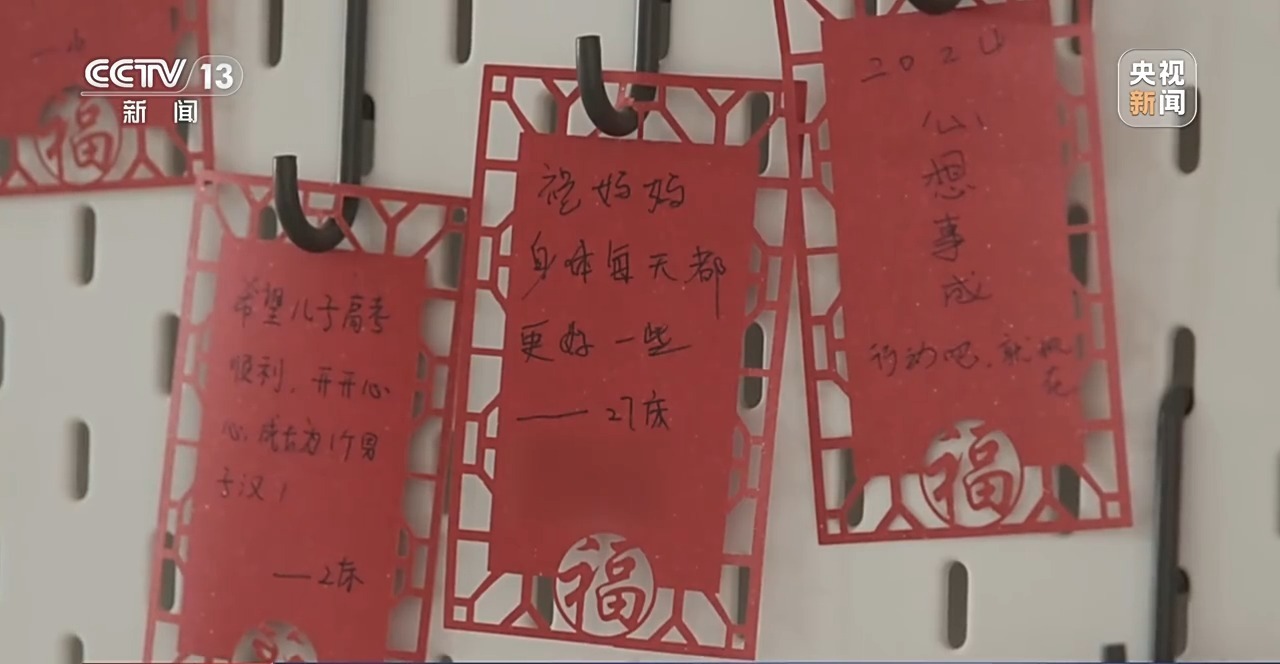 CCTV 13
新闻
央视
新闻
福
希望儿子高考
顺利，开开心
心，成长为1个男
子汉！
——2床
祝妈妈
身体每天都
更好一些
——27床
福
心
想
事
成
行动吧，就
福